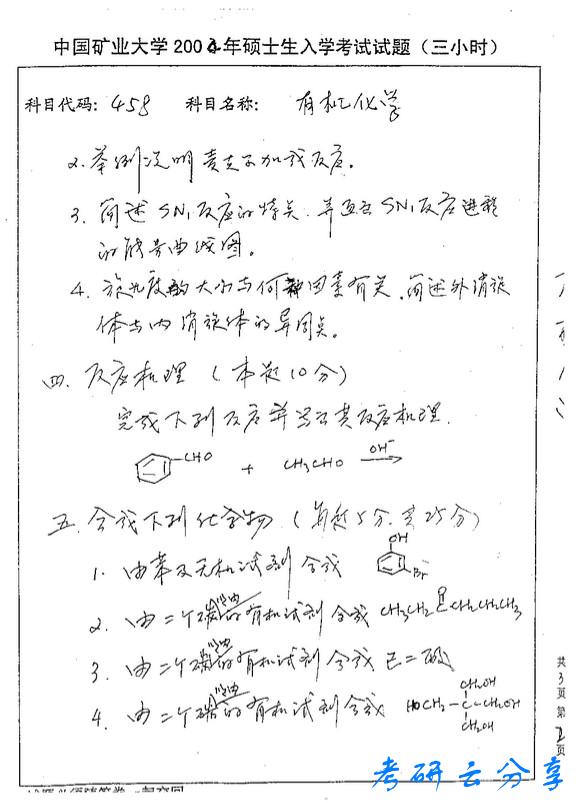 中国矿业大学2002年硕士生入学考试试题（三小时）
科目代码：458 科目名称： 有机化学
2. 举例说明麦克尔加成反应。
3. 简述SN1反应的特点，并画出SN1反应进程
的能量曲线图。
4. 旋光度的大小与何种因素有关，简述外消旋
体与内消旋体的异同点。
四. 反应机理（本题10分）
完成下列反应并写出其反应机理.
CHO + CH3CHO OH-
五. 合成下列化合物（每题5分，共25分）
1. 由苯及无机试剂合成 OH Br
2. 由二个碳以内的有机试剂合成 CH3CH2CCH2CH2CH3
O
3. 由二个碳以内的有机试剂合成 己二酸
4. 由二个碳以内的有机试剂合成 HOCH2-C-CH2OH
CH2OH
CH2OH
共3页 第2页
考研云分享